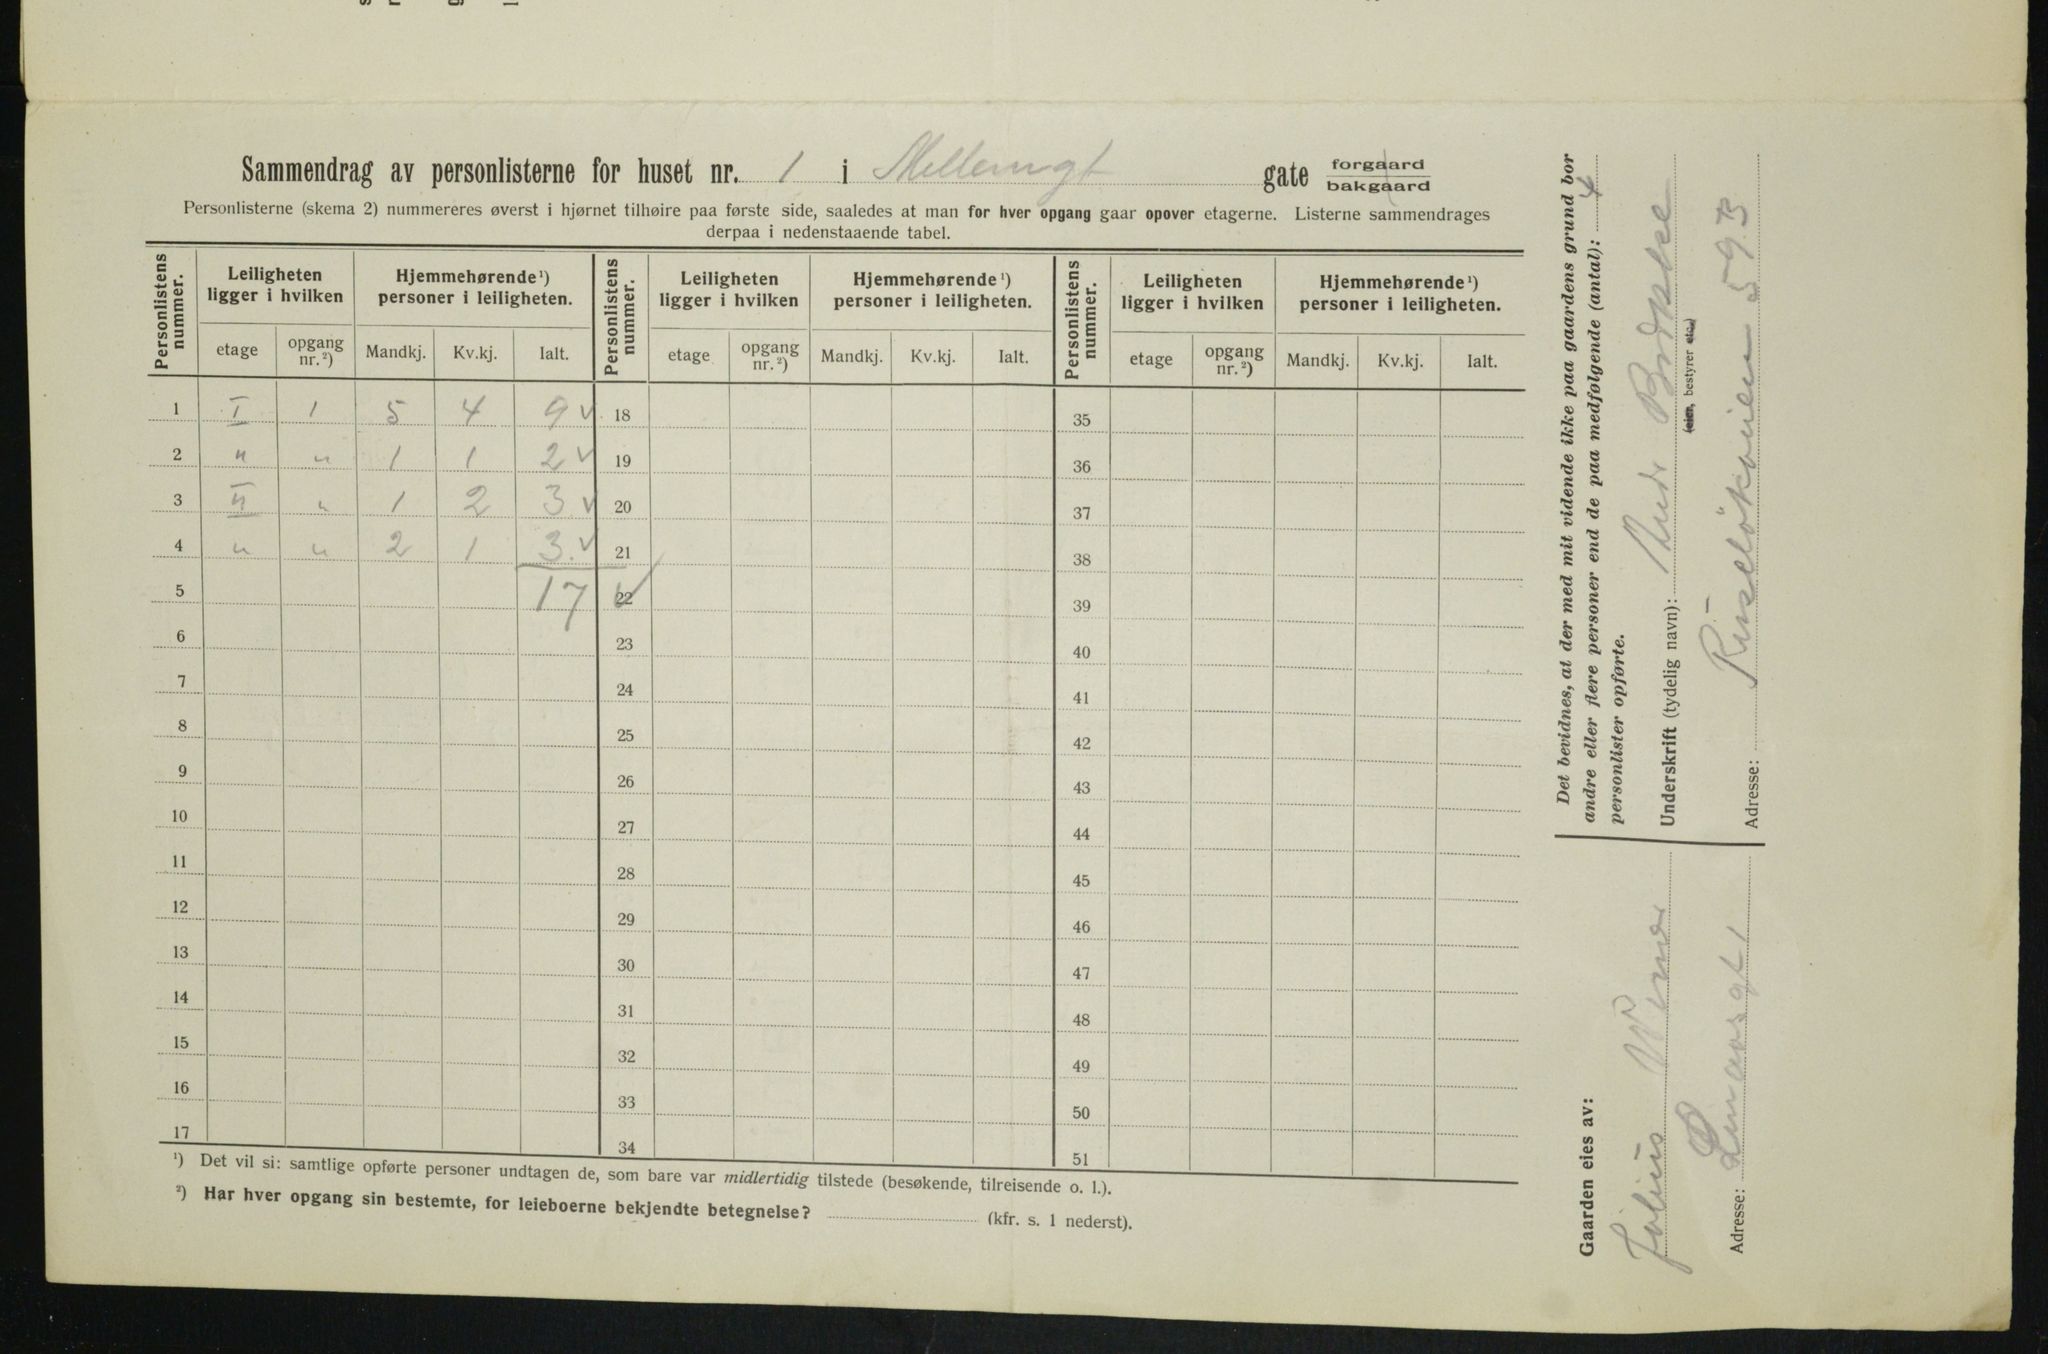 Sammendrag av personlisterne for huset nr. 1 i Mellemgt gate forgaard
bakgaard
Personlisterne (skema 2) nummereres øverst i hjørnet tilhøire paa første side, saaledes at man for hver opgang gaar opover etagerne. Listerne sammendrages
derpaa i nedenstaaende tabel.
Personlistens nummer. Leiligheten ligger i hvilken Hjemmehørende ¹) personer i leiligheten. Personlistens nummer. Leiligheten ligger i hvilken Hjemmehørende ¹) personer i leiligheten. Personlistens nummer. Leiligheten ligger i hvilken Hjemmehørende ¹) personer i leiligheten.
etage opgang nr. ²) Mandkj. Kv.kj. Ialt. etage opgang nr. ²) Mandkj. Kv.kj. Ialt. etage opgang nr. ²) Mandkj. Kv.kj. Ialt.
1 I 1 5 4 9 ✓ 18 35
2 " " 1 1 2 ✓ 19 36
3 II " 1 2 3 ✓ 20 37
4 " " 2 1 3. ✓ 21 38
5 17 ✓ 22 39
6 23 40
7 24 41
8 25 42
9 26 43
10 27 44
11 28 45
12 29 46
13 30 47
14 31 48
15 32 49
16 33 50
17 34 51
¹) Det vil si: samtlige opførte personer undtagen de, som bare var midlertidig tilstede (besøkende, tilreisende o. l.).
²) Har hver opgang sin bestemte, for leieboerne bekjendte betegnelse? (kfr. s. 1 nederst).
Det bevidnes, at der med mit vidende ikke paa gaardens grund bor
andre eller flere personer end de paa medfølgende (antal): 4
personlister opførte.
Underskrift (tydelig navn):
(eier, bestyrer etc.)
Adresse: Ruseløkveien 59 B
Gaarden eies av:
Julius
Adresse: